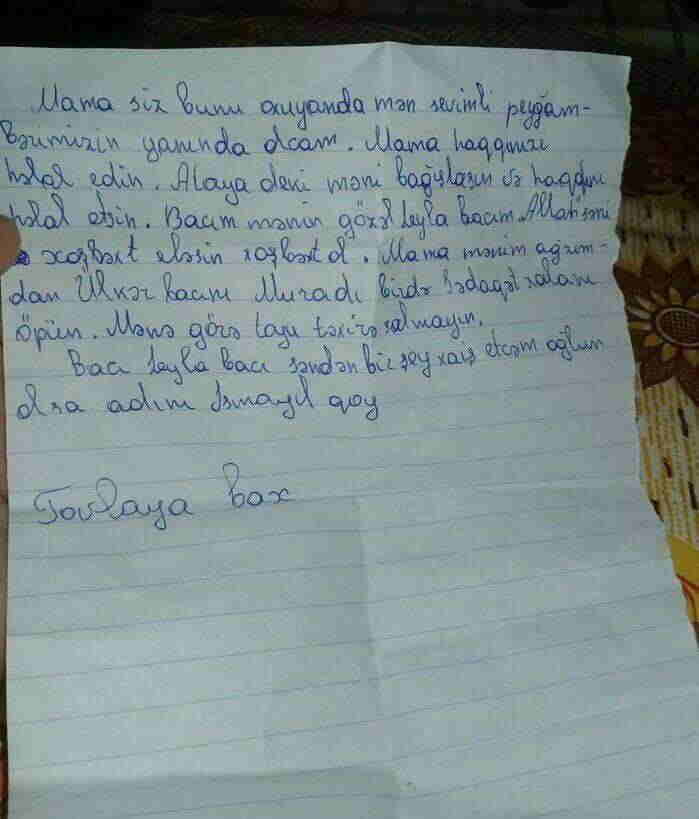 Mama siz bunu oxuyanda mən sevimli peyğəm-
bərimizin yanında olcam. Mama haqqınızı
halal edin. Ataya deki məni bağışlasın və haqqını
halal etsin. Bacım mənim gözəl Leyla bacım Allah səni
xoşbəxt eləsin xoşbəxt ol. Mama mənim ağzım-
dan Ülkər bacımı Muradı birdə Sədaqət xalamı
öpün. Mənə görə toyu təxirə salmayın.
Bacı Leyla bacı səndən bir şey xaiş etcəm oğlun
olsa adını İsmayıl qoy
Tovlaya bax